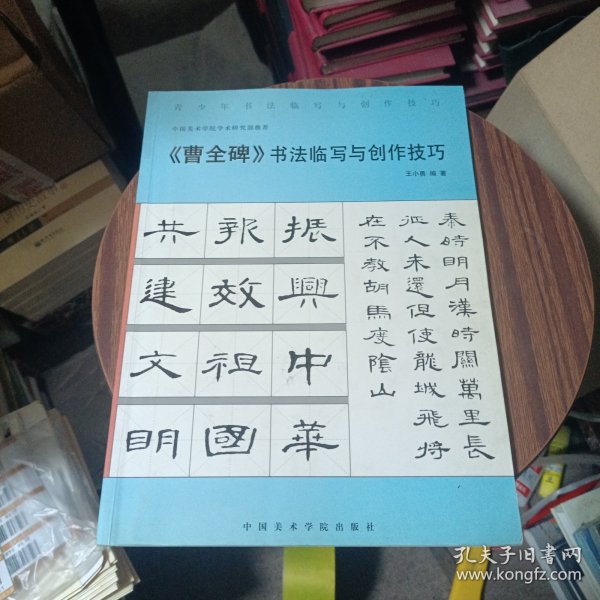 青少年书法临写与创作技巧
中国美术学院学术研究部推荐
《曹全碑》书法临写与创作技巧
王小勇 编著
振興中華
報效祖國
共建文明
秦時明月漢時關萬里長
征人未還但使龍城飛將
在不教胡馬度陰山
中国美术学院出版社
孔夫子旧书网
www.kongfz.com